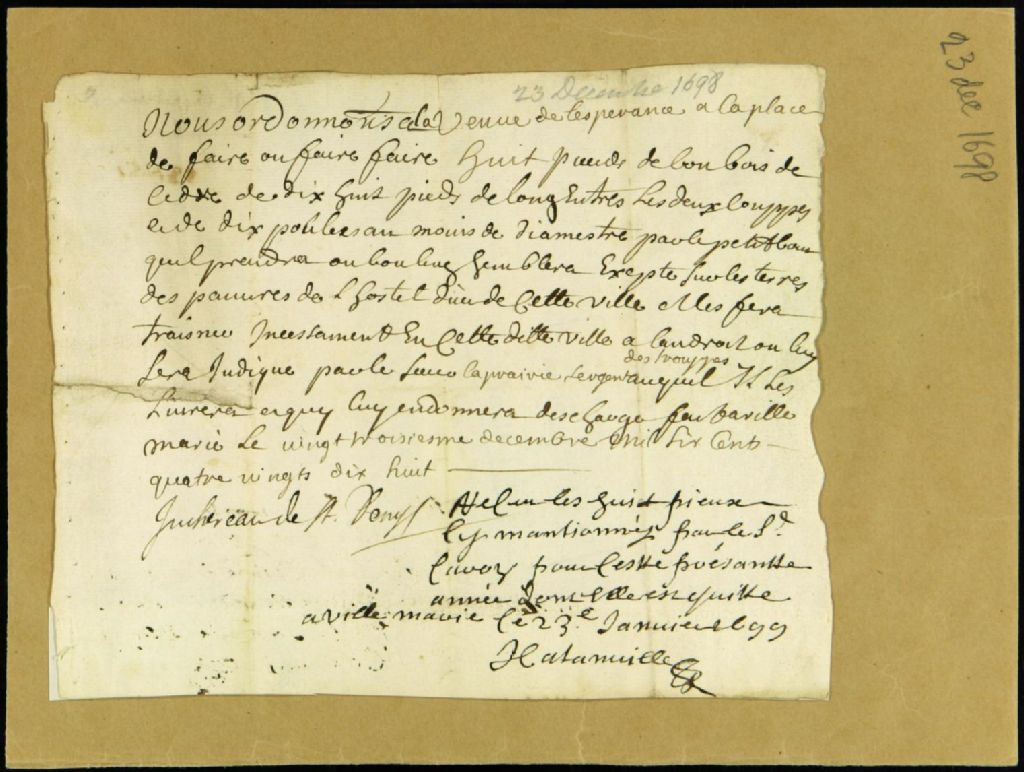 23 Decembre 1698
23 dec 1698
Nous ordonnons a la Veuve de Lesperance a la place
de faire ou faire faire huit pieuds de bon bois de
cedre de dix huit pieds de long Entres Les deux Couppes
e de dix poulces au moins de diamestre par le petit bout
quil prendra ou bon luy Semblera Exepte Sur les terres
des pauvres de L hostel dieu de Cette ville e Les fera
traisner Incessament En Cette ditte ville a landroit ou luy
Sera Indique par le Sieur Laprairie Sergent
des trouppes
auquel Il Les
Livrera e quy luy en donnera descharge fait a ville
marie Le vingt troisiesme decembre mil six Cents
quatre vingts dix huit
Juchereau de St. Denys
Recu les huit pieux
Cy mantionnéz par le Sr.
pour Cestte présantte
année Dont Elle est quitte
a ville marie Le 23e Janvier 1699